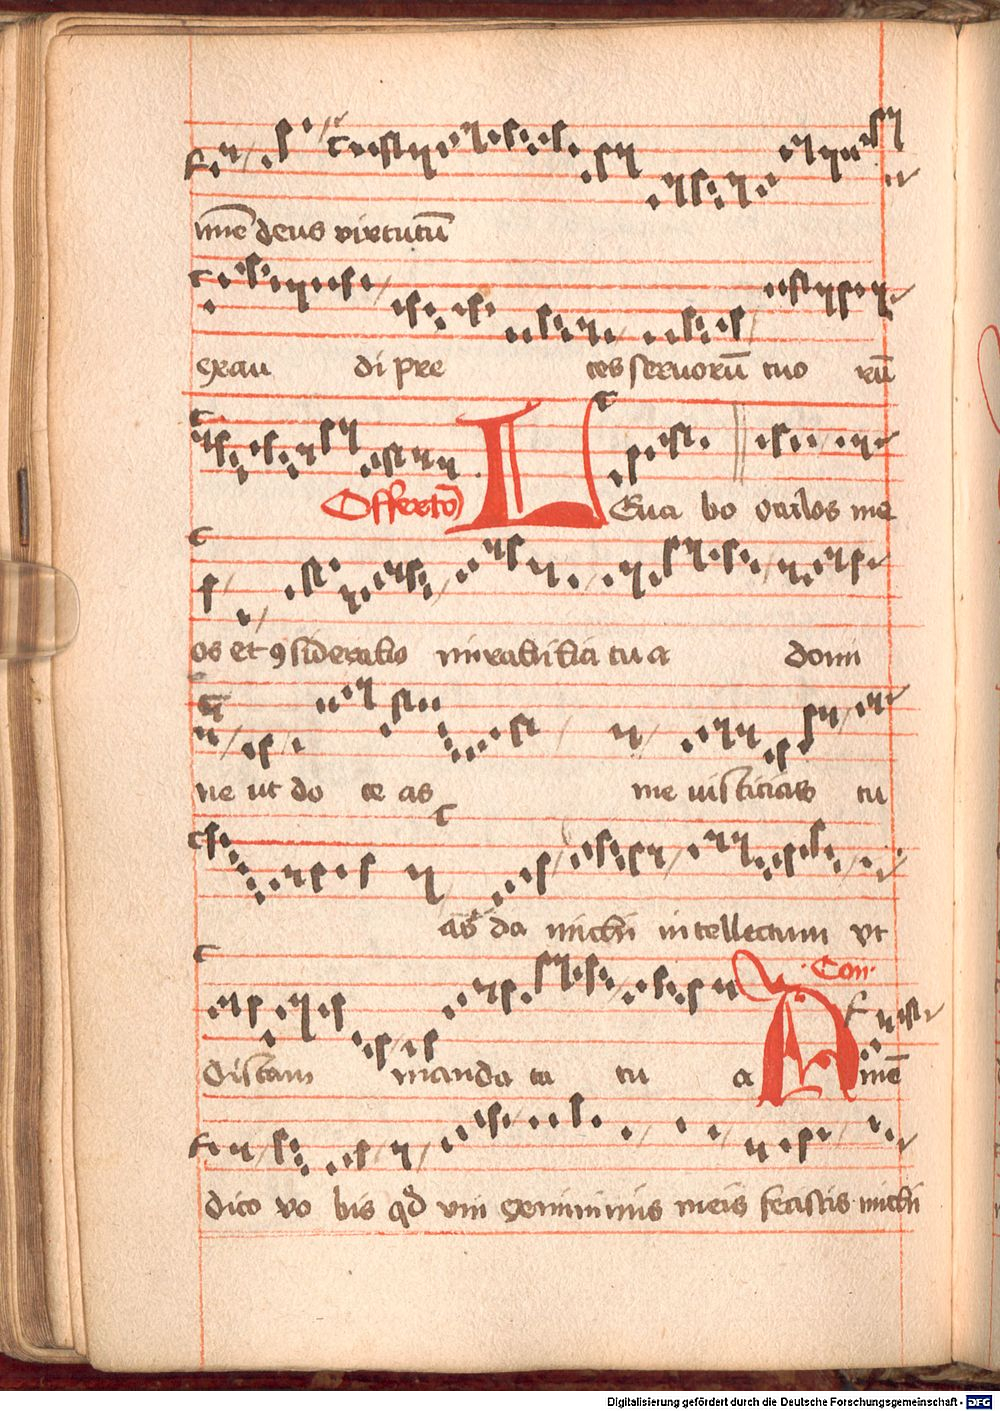 mīne deus virtutū
exau di pre ces seruorū tuo rū
Offertō Leua bo oculos me
os et ꝯsiderabo mirabilia tua domi
ne ut do ce as me iusticias tu
as da michi intellectum vt
discam manda ta tu a Com. Amē
dico vo bis qd vni ex minimis meis fecistis michi
Digitalisierung gefördert durch die Deutsche Forschungsgemeinschaft - DFG